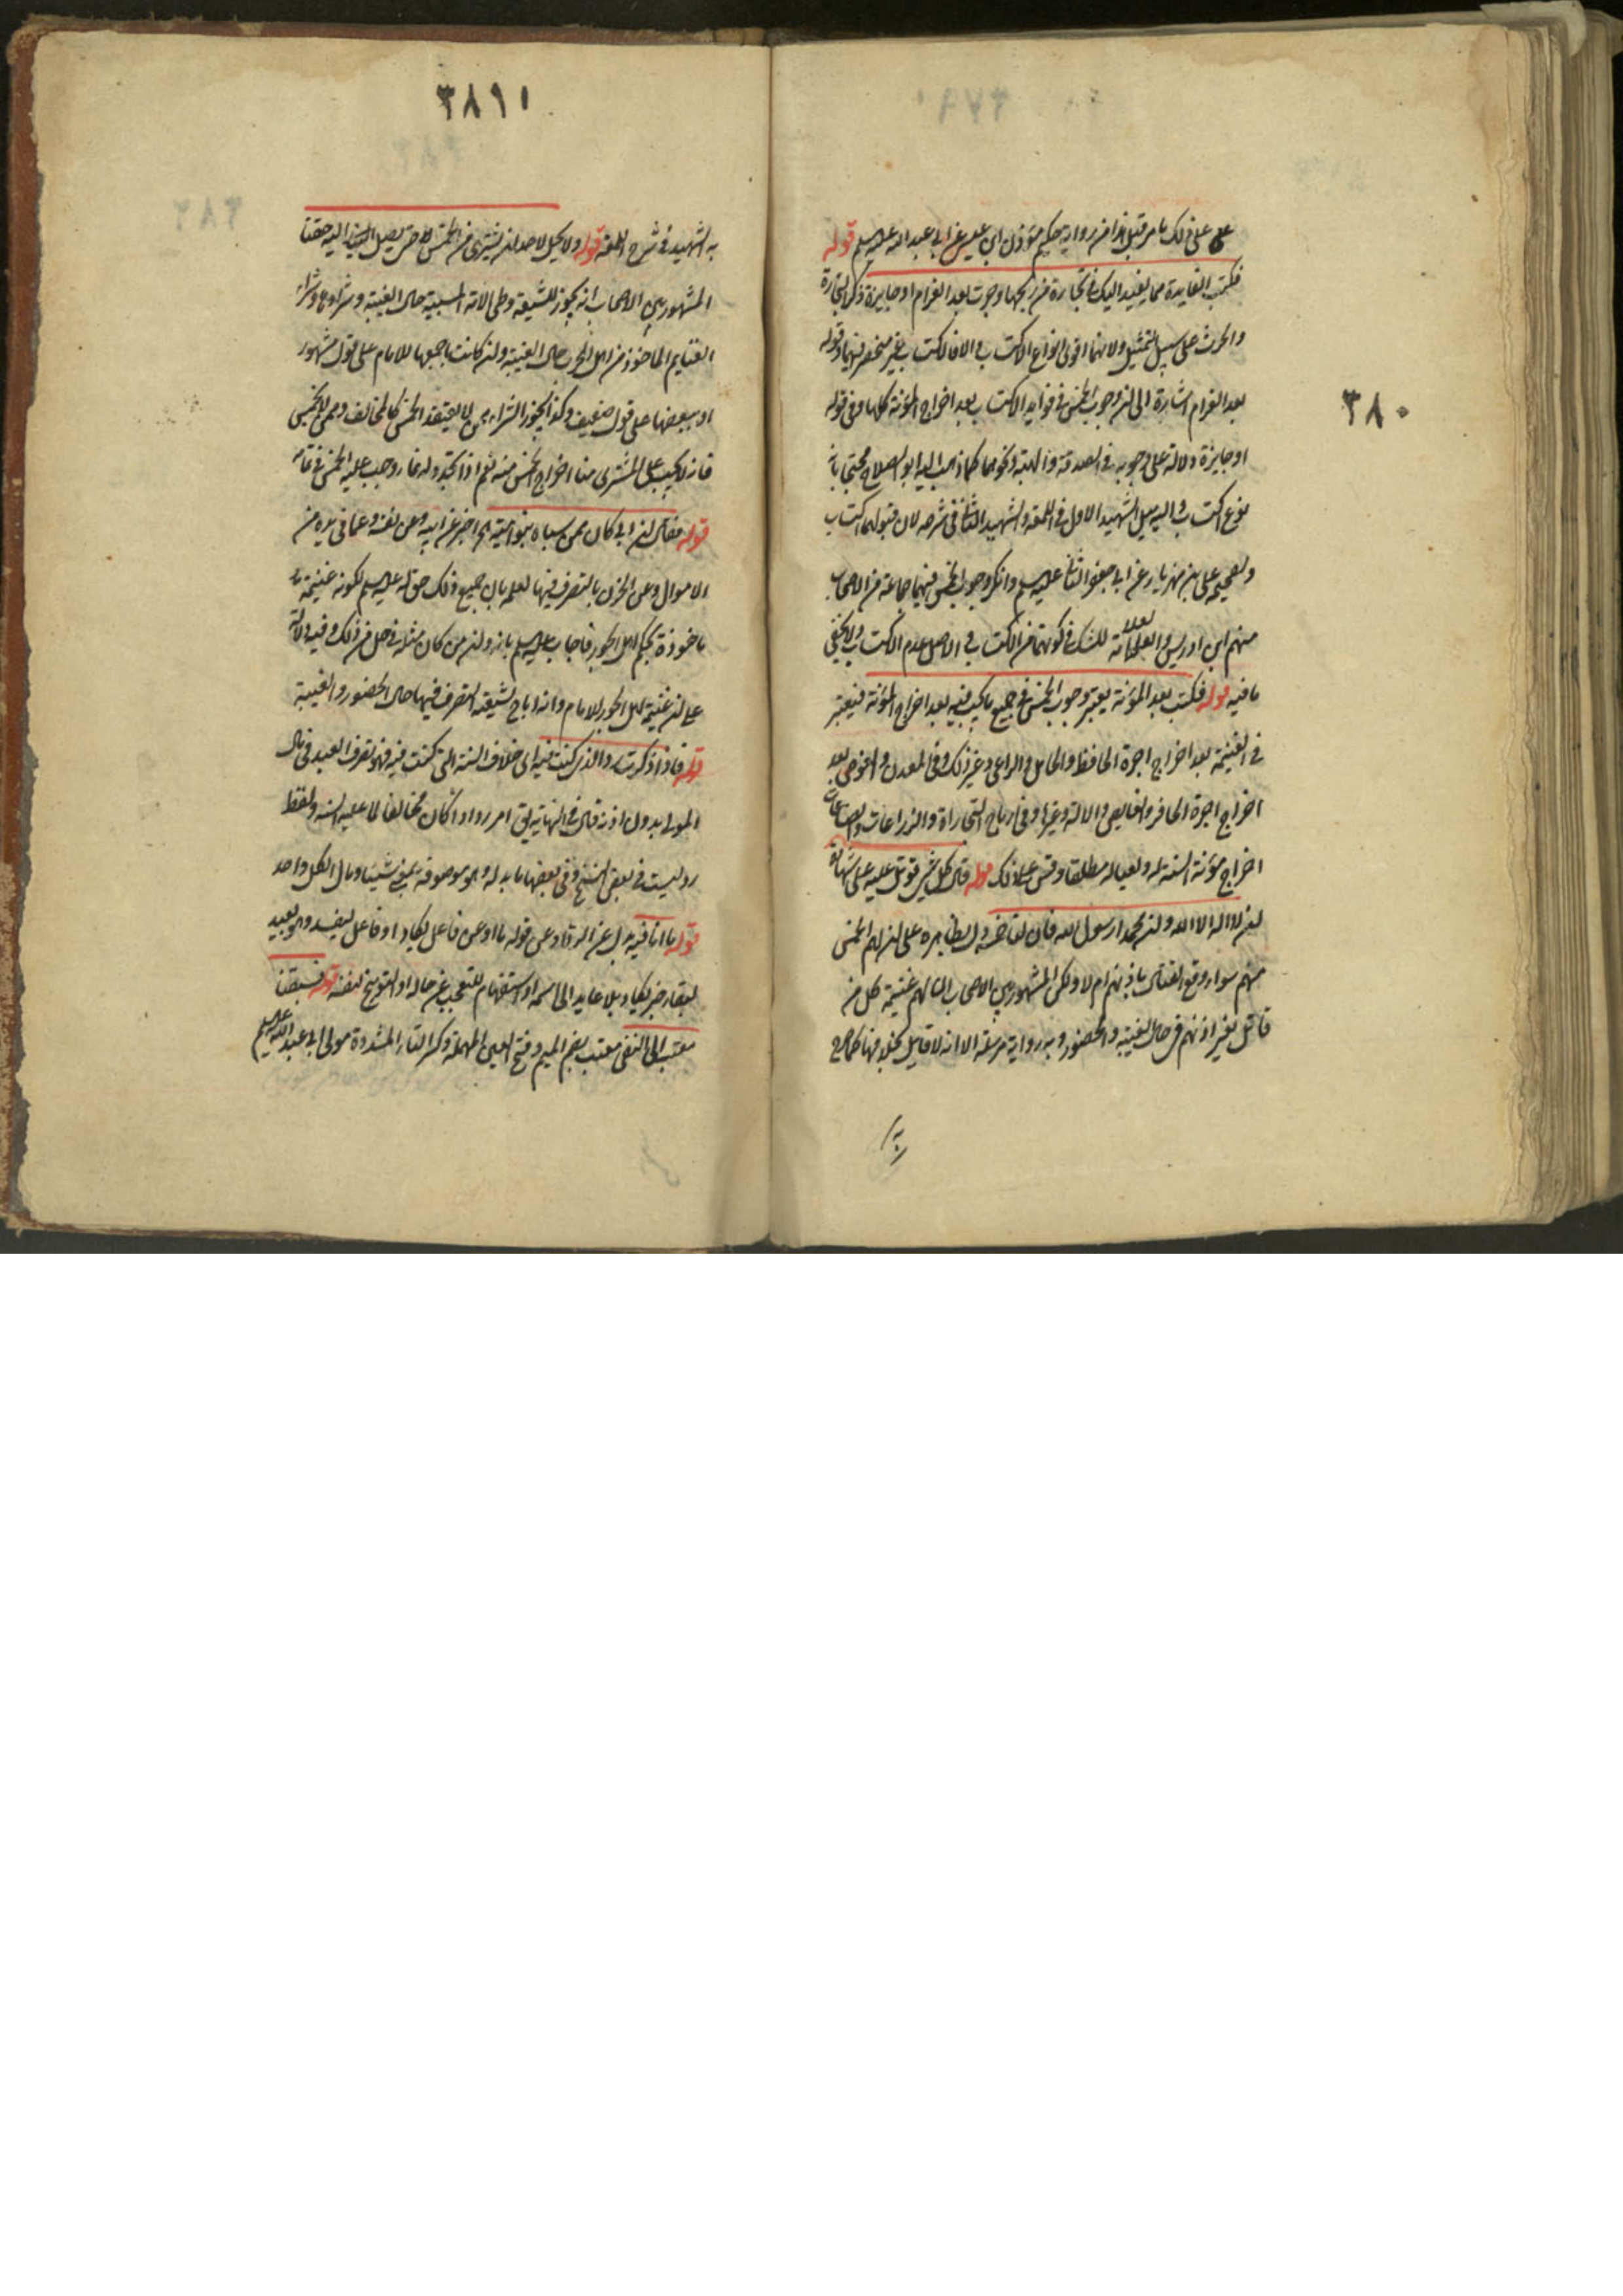 ٣٨٠
على ذلك ما مر قبل هذا من رواية حكيم مؤذن ابن عيسى عن ابي عبد الله عليه السلم قوله
فكتب الفايدة مما يفيد اليك في تجارة من ربحها وحرث بعد الغرام او جايزة ذكر التجارة
والحرث على سبيل التمثيل ولانهما اقوى انواع الاكتساب والا فالاكتساب غير منحصر فيهما وقوله
بعد الغرام اشارة الى ان وجوب الخمس في فوايد الاكتساب بعد اخراج المؤنة كلها وفي قوله
او جايزة دلالة على وجوبه في الصدقة والهبة ونحوهما كما ذهب اليه ابو الصلاح محتجا بانه
نوع اكتساب واليه ميل الشهيد الاول في اللمعة والشهيد الثاني في شرحه لان قبولهما اكتساب
ولصحيحة على بن مهزيار عن ابي جعفر الثاني عليه السلم وانكر وجوب الخمس فيهما جماعة من الاصحاب
منهم ابن ادريس والعلامة للشك في كونهما من الاكتساب والاصل عدم الاكتساب ولا يخفى
ما فيه قوله فكتب بعد المؤنة يعتبر وجوب الخمس في جميع ما يجب فيه بعد اخراج المؤنة فيعتبر
في الغنيمة بعد اخراج اجرة الحافظ والحامل والراعى وغير ذلك وفي المعدن والغوص بعد
اخراج اجرة الحافر والغايص والالة وغيرها وفي ارباح التجارات والزراعات والصناعات
اخراج مؤنة السنة له ولعياله مطلقا وقس على ذلك قوله قال كل شيء قوتل عليه على شهادة
ان لا اله الا الله وان محمدا رسول الله فان لنا خمسه دل بظاهره على ان لهم الخمس
منهم سواء وقع القتال باذنهم ام لا ولكن المشهور بين الاصحاب ان لهم غنيمة كل من
قاتل بغير اذنهم في حال الغيبة والحضور وبه رواية مرسلة الا انه لا قايل بخلافها كما صرح
به
٣٨٩١
به الشهيد في شرح اللمعة قوله ولا يحل لاحد ان يشترى من الخمس شيئا حتى يصل الينا حقنا
المشهور بين الاصحاب انه يجوز للشيعة وطى الامة المسبية حال الغيبة وشراؤها وشراء
الغنايم الماخوذ من اهل الحرب حال الغيبة وان كانت باجمعها للامام على قول مشهور
او بعضها على قول ضعيف وكذا يجوز الشراء ممن لا يعتقد الخمس كالمخالف وممن لا يخمس
فانه لا يجب على المشترى منا اخراج الخمس منه نعم اذا تجدد له نماء وجب عليه الخمس في نمائه
قوله فقال ان ابي كان ممن سباه بنو امية اخبر عن ابيه وعن نفسه وعما في يده من
الاموال وعن الخزن بالتصرف فيها لعلمه بان جميع ذلك حق له عليه السلم لكونه غنيمة
ماخوذة بحكم اهل الجور فاجاب عليه السلم بانه وان من كان مثله في حل من ذلك وفيه دلالة
على ان غنيمة اهل الجور للامام وانه اباح لشيعته التصرف فيها حال الحضور والغيبة
قوله فاذا ذكرت رد الذي كنت فيه اى خلاف السنة التي كنت فيه فهو تصرف العبيد في مال
المولى بدون اذنه قال في النهاية يق امر رد اذا كان مخالفا لما عليه السنة ولفظ
رد ليست في بعض النسخ وفي بعضها ما بدله وهو موصوفة بمعنى شيئا ومال الكل واحد
قوله ما انا فيه بدل عن الرد او عن قوله ما او عن فاعل يكاد او فاعل يفسد وهو بعيد
لبقاء خبر يكاد بلا عايد الى اسمه او استفهام للتعجب عن حاله او التوبيخ لنفسه قوله فسبقنا
معتب الى النفى معتب بضم الميم وفتح العين المهملة وكسر التاء المشددة مولى ابي عبد الله عليه السلم